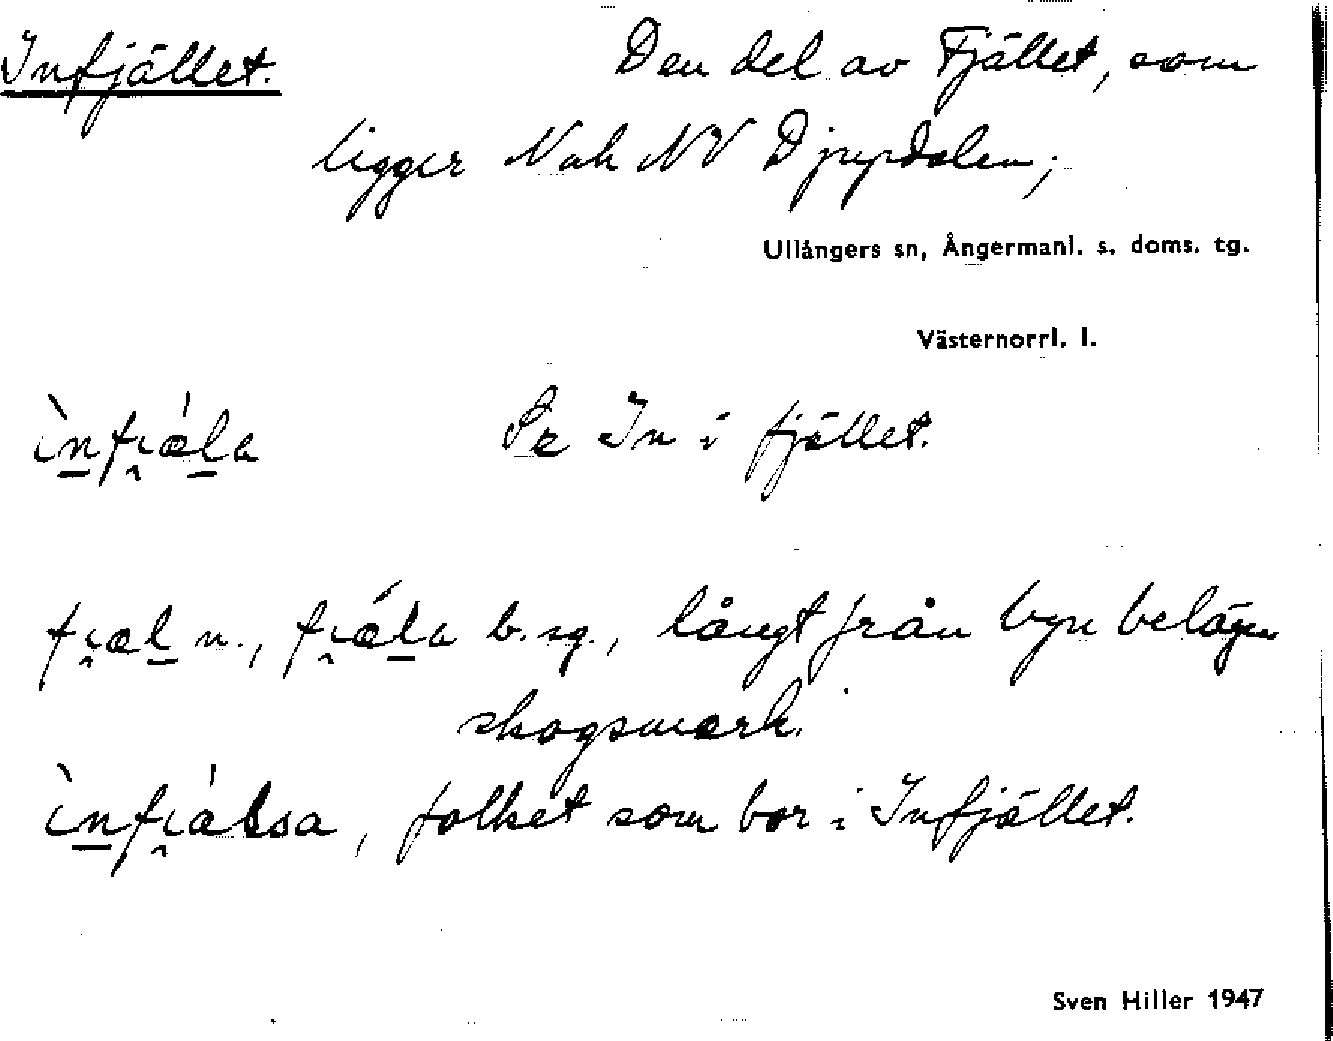 Infjället. Den del av Fjället, som
ligger N och NV Djupdalen;
Ullångers sn, Ångermanl. s. doms. tg.
Västernorrl. l.
ìn̲fi̯ǽl̲a Pr In i fjället.
fi̯æl̲ n., fi̯ǽl̲a b. sg., långt från byn belägen
skogsmark.
ìn̲fi̯álsa, folket som bor i Infjället.
Sven Hiller 1947